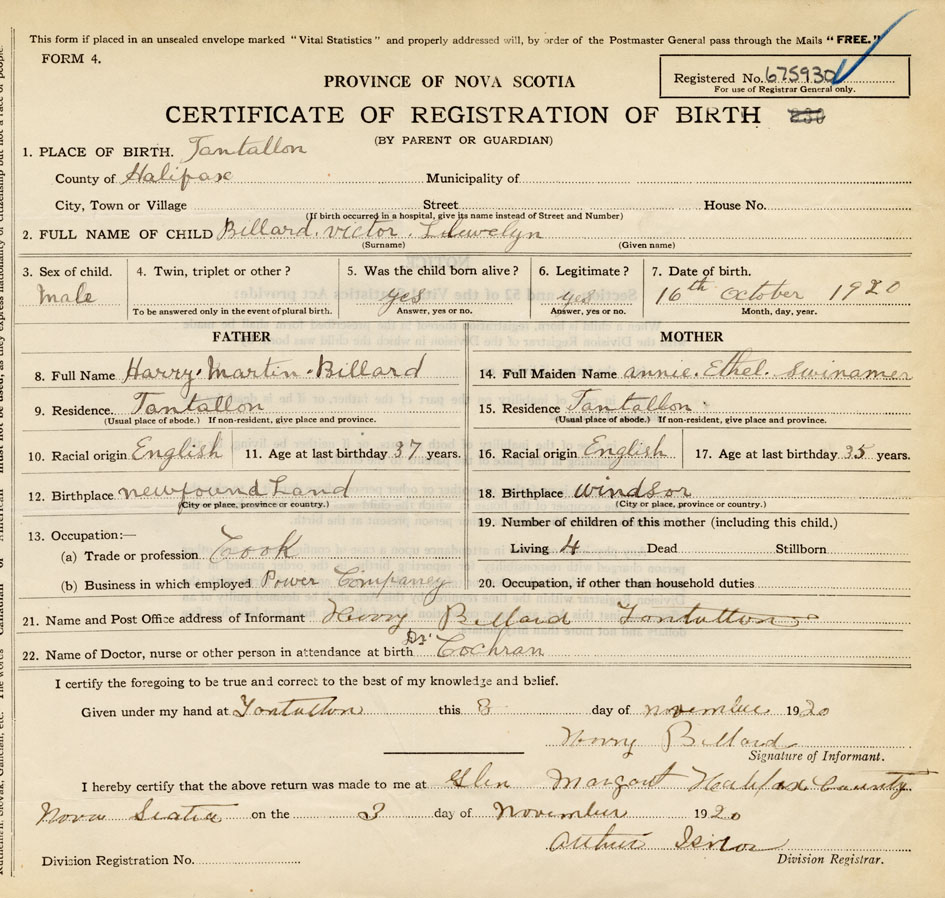 This form if placed in an unsealed envelope marked "Vital Statistics" and properly addressed will, by order of the Postmaster General pass through the Mails "FREE."
FORM 4.
Registered No. 675930
For use of Registrar General only.
PROVINCE OF NOVA SCOTIA
CERTIFICATE OF REGISTRATION OF BIRTH
(BY PARENT OR GUARDIAN)
1. PLACE OF BIRTH. Tantallon
County of Halifax Municipality of
City, Town or Village Street House No.
(If birth occurred in a hospital, give its name instead of Street and Number)
2. FULL NAME OF CHILD Billard. victor. Llewelyn
(Surname) (Given name)
3. Sex of child. 4. Twin, triplet or other? 5. Was the child born alive? 6. Legitimate? 7. Date of birth.
Male yes yes 16th October 1920
To be answered only in the event of plural birth. Answer, yes or no. Answer, yes or no. Month, day, year.
FATHER MOTHER
8. Full Name Harry. Martin. Billard 14. Full Maiden Name annie. Ethel. Swinamer
9. Residence. Tantallon 15. Residence Tantallon
(Usual place of abode.) If non-resident, give place and province. (Usual place of abode.) If non-resident, give place and province.
10. Racial origin English 11. Age at last birthday 37 years. 16. Racial origin English 17. Age at last birthday 35 years.
12. Birthplace newfound Land 18. Birthplace windsor
(City or place, province or country.) (City or place, province or country.)
13. Occupation:— 19. Number of children of this mother (including this child.)
(a) Trade or profession Cook Living 4 Dead Stillborn
(b) Business in which employed Power Companey 20. Occupation, if other than household duties
21. Name and Post Office address of Informant Harry Billard Tantallon
22. Name of Doctor, nurse or other person in attendance at birth Dr. Cochran
I certify the foregoing to be true and correct to the best of my knowledge and belief.
Given under my hand at Tantallon this 3 day of november 1920
Harry Billard
Signature of Informant.
I hereby certify that the above return was made to me at Glen Margaret Halifax County
Nova Scotia on the 3 day of November 1920
Arthur Isnor
Division Registrar.
Division Registration No.